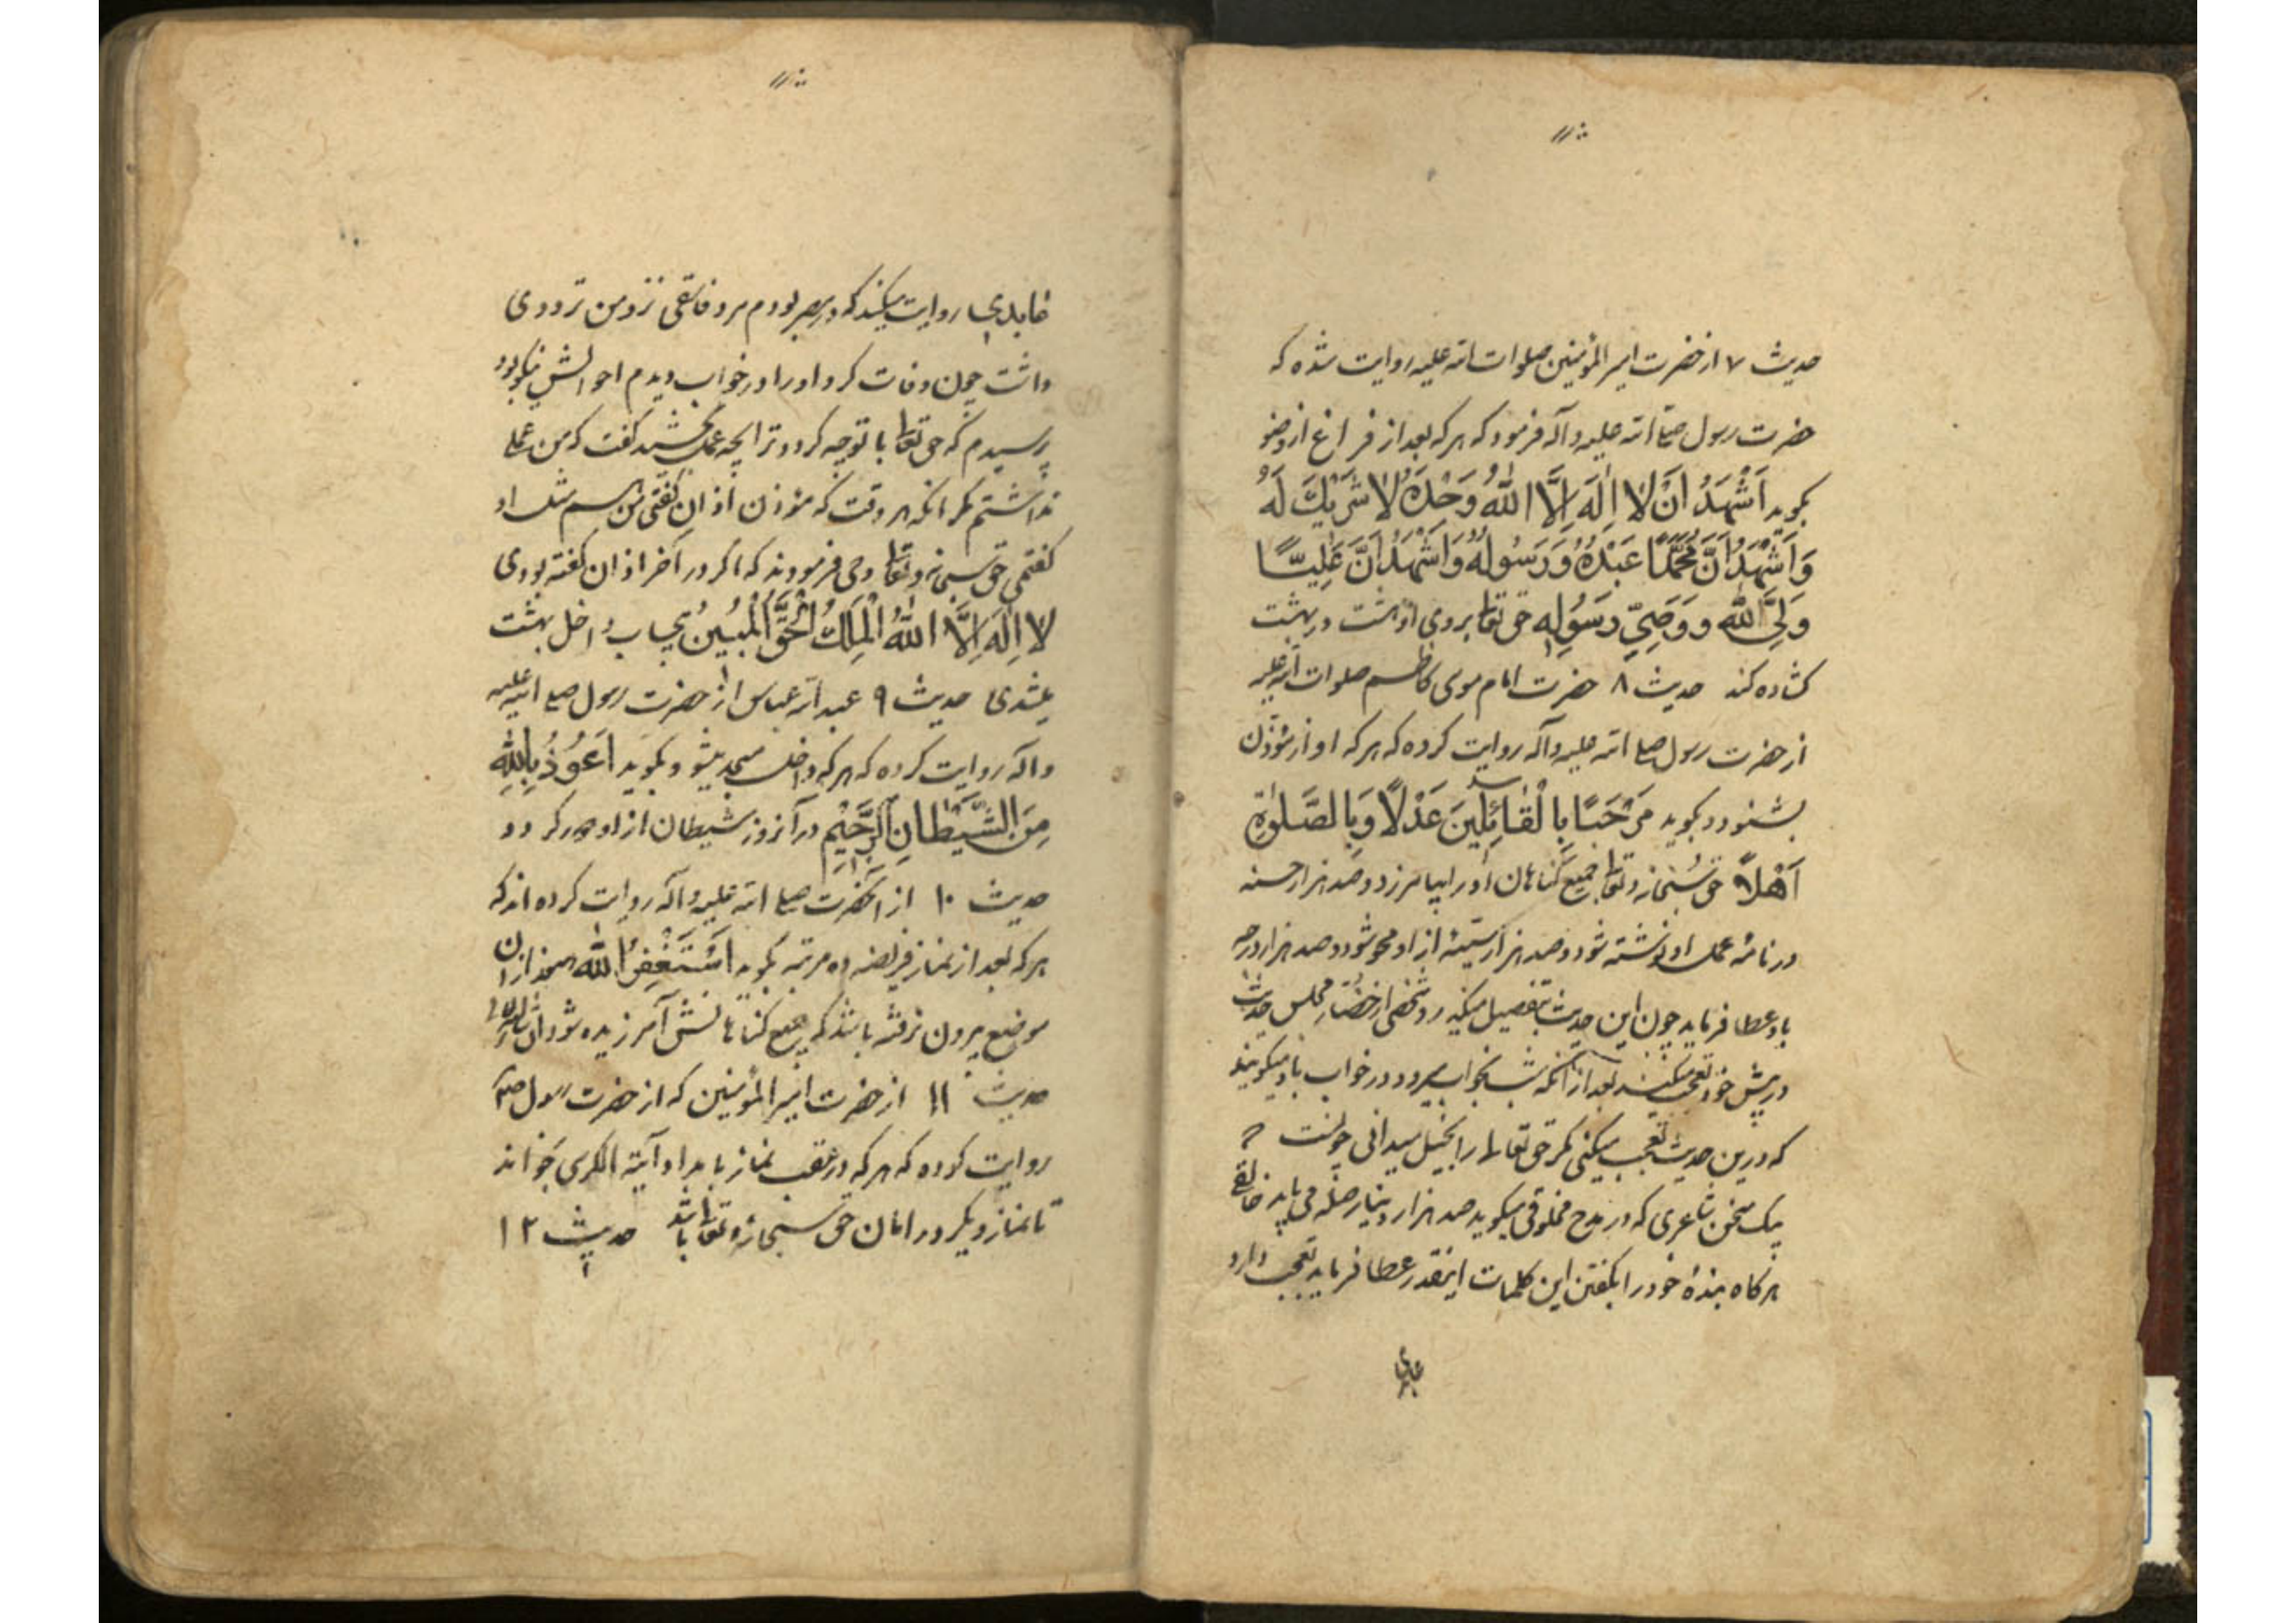 حدیث ۷ از حضرت امیر المؤمنین صلوات الله علیه روایت شده که
حضرت رسول صلی الله علیه و آله فرمود که هر که بعد از فراغ از وضو
بکوید اَشْهَدُ اَنْ لا اِلٰهَ اِلَّا اللهُ وَحْدَهُ لا شَرِیْكَ لَهُ
وَ اَشْهَدُ اَنَّ مُحَمَّدًا عَبْدُهُ وَ رَسُولُهُ وَ اَشْهَدُ اَنَّ عَلِیًّا
وَلِیُّ اللهِ وَ وَصِیُّ رَسُولِهِ حق تعا بروی او هشت در بهشت
کشاده کند حدیث ۸ حضرت امام موسی کاظم صلوات الله علیه
از حضرت رسول صلی الله علیه و آله روایت کرده که هر که اواز مؤذن
بشنود و بکوید مَرْحَبًا بِالْقَائِلِینَ عَدْلًا وَ بِالصَّلوٰةِ
اَهْلًا حق سبحانه و تعا جمیع کناهان او را بیامرزد و صد هزار حسنه
در نامهٔ عمل او نوشته شود و صد هزار سیّئه از او محو شود و صد هزار درجه
باو عطا فرماید چون این حدیث بتفصیل میکند شخصی از حضار مجلس حدیث
در پیش خود تعجب میکند بعد از آنکه شب بخواب میرود در خواب باو میکویند
که درین حدیث تعجب میکنی مکر حق تعالی را بخیل میدانی چونست که
یک سخن شاعری که در مدح مخلوقی میکوید صد هزار دینار صله می یابد خالقی
هر کاه بندهٔ خود را بکفتن این کلمات اینقدر عطا فرماید تعجب دارد
عابدی
عابدی روایت میکند که در مصر بودم مرد فاسقی نزد من ترددی
داشت چون وفات کرد او را در خواب دیدم احوالش نیکو بود
پرسیدم که حق تعا با تو چه کرد و ترا بچه عمل بخشید کفت که من عملی
نداشتم مکر انکه هر وقت که مؤذن اذان کفتی من هم مثل او
کفتمی حق سبحانه و تعا وحی فرمودند که اکر در آخر اذان کفته بودی
لا اِلٰهَ اِلَّا اللهُ الْمَلِكُ الْحَقُّ الْمُبِینُ بیحساب داخل بهشت
میشدی حدیث ۹ عبد الله عباس از حضرت رسول صلی الله علیه
و آله روایت کرده که هر که داخل مسجد میشود و بکوید اَعُوذُ بِاللهِ
مِنَ الشَّیْطَانِ الرَّجِیْمِ در آنروز شیطان از او دور کردد
حدیث ۱۰ از آنحضرت صلی الله علیه و آله روایت کرده اند که
هر که بعد از نماز فریضه ده مرتبه بکوید اَسْتَغْفِرُ اللهَ هنوز از ان
موضع بیرون نرفته باشد که جمیع کناهانش آمرزیده شود ان شاء الله
حدیث ۱۱ از حضرت امیر المؤمنین که از حضرت رسول ص
روایت کرده که هر که در عقب نماز بامداد آیة الکرسی بخواند
تا نماز دیکر در امان حق سبحانه و تعا باشد حدیث ۱۲